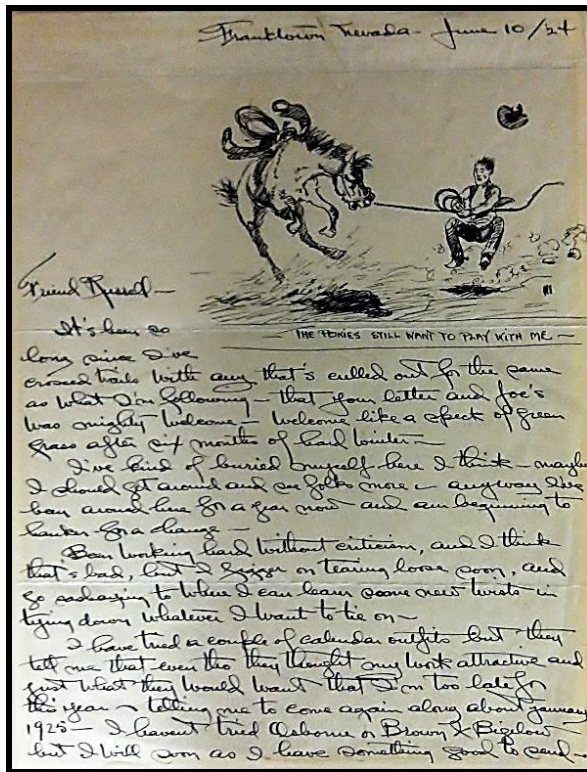 Franktown Nevada - June 10/24
Friend Russell -
THE PONIES STILL WANT TO PLAY WITH ME -
It's been so
long since I've
crossed trails with any that's culled out for the same
as what I'm following - that your letter and Joe's
was mighty welcome - welcome like a speck of green
grass after six months of hard winter -
I've kind of buried myself here I think - maybe
I should get around and see folks more - anyway I've
ben around here for a year now and am beginning to
hanker for a change -
Ben working hard without criticism, and I think
that's bad, but I figger on tearing loose soon, and
go sashaying to where I can learn some new twists in
tying down whatever I want to tie on -
I have tried a couple of calendar outfits but they
tell me that even tho they thought my work attractive and
just what they would want that I'm too late for
this year - telling me to come again along about January
1925 - I havent tried Osborne or Brown & Bigelow
but I will soon as I have something good to send -